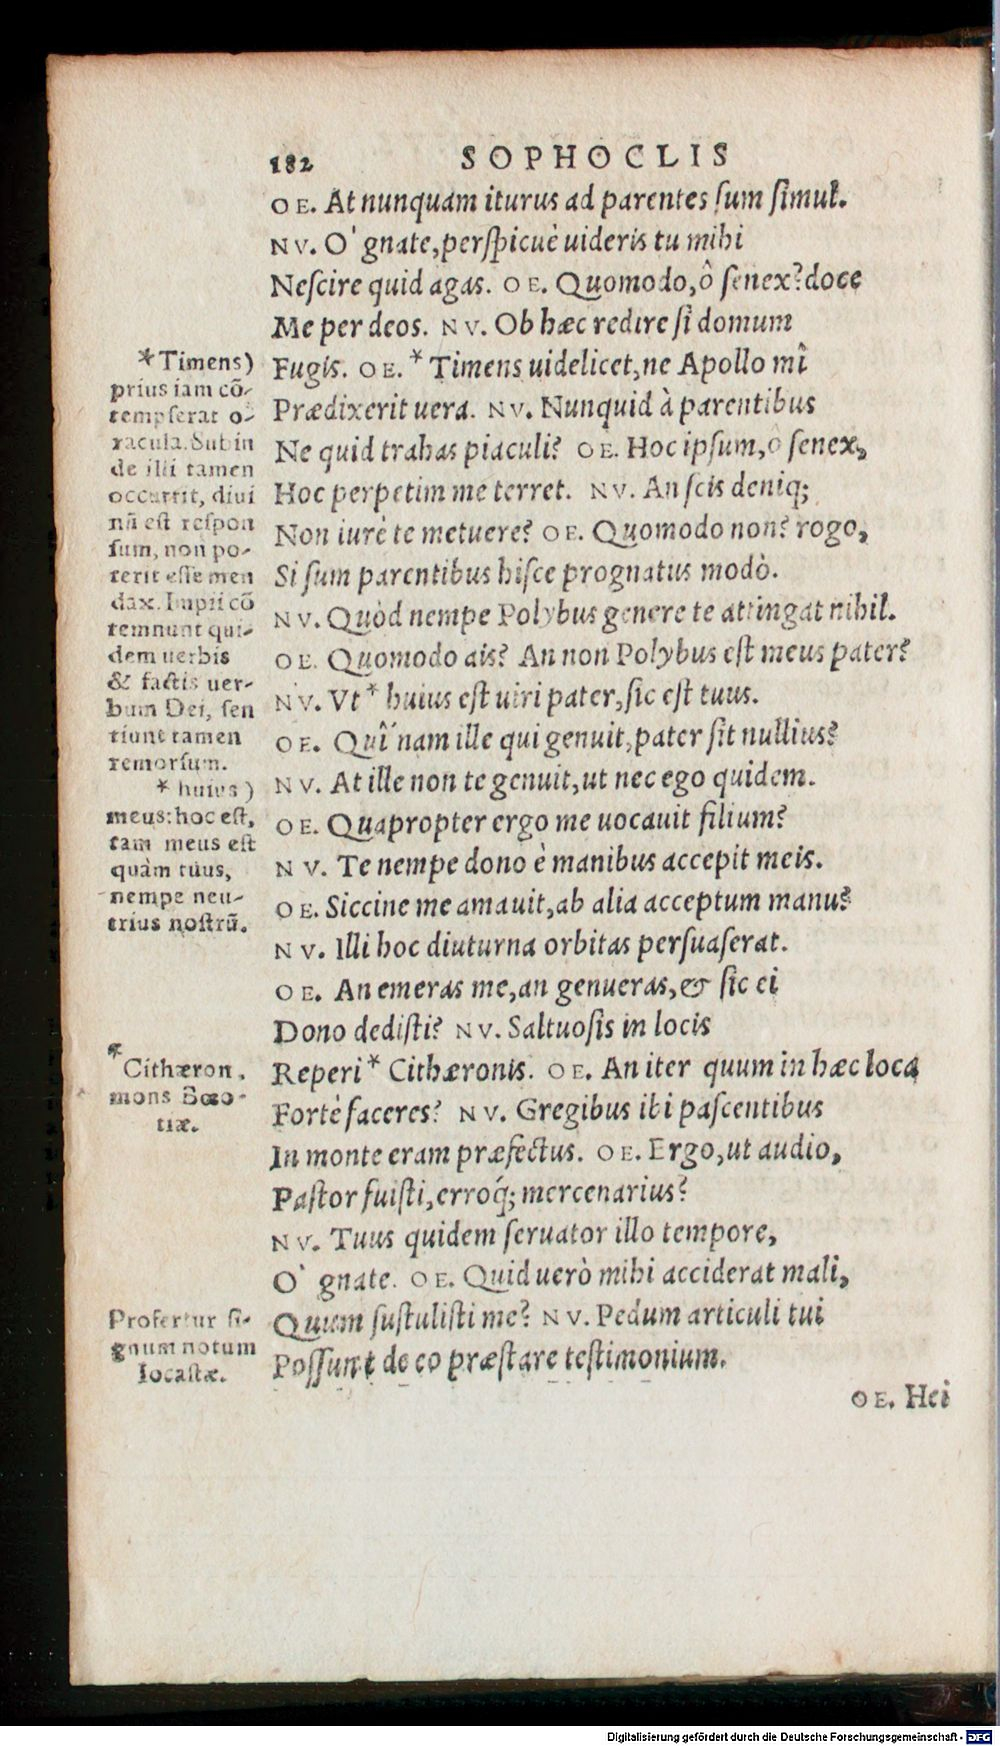 182 SOPHOCLIS
OE. At nunquam iturus ad parentes sum simul.
NV. O' gnate, perspicuè uideris tu mihi
Nescire quid agas. OE. Quomodo, ô senex? doce
Me per deos. NV. Ob hæc redire si domum
Fugis. OE. * Timens uidelicet, ne Apollo mî
Prædixerit uera. NV. Nunquid à parentibus
Ne quid trahas piaculi? OE. Hoc ipsum, ô senex,
Hoc perpetim me terret. NV. An scis deniq;
Non iurè te metuere? OE. Quomodo non? rogo,
Si sum parentibus hisce prognatus modò.
NV. Quòd nempe Polybus genere te attingat nihil.
OE. Quomodo ais? An non Polybus est meus pater?
NV. Vt * huius est uiri pater, sic est tuus.
OE. Quî nam ille qui genuit, pater sit nullius?
NV. At ille non te genuit, ut nec ego quidem.
OE. Quapropter ergo me uocauit filium?
NV. Te nempe dono è manibus accepit meis.
OE. Siccine me amauit, ab alia acceptum manu?
NV. Illi hoc diuturna orbitas persuaserat.
OE. An emeras me, an genueras, & sic ei
Dono dedisti? NV. Saltuosis in locis
Reperi * Cithæronis. OE. An iter quum in hæc loca
Fortè faceres? NV. Gregibus ibi pascentibus
In monte eram præfectus. OE. Ergo, ut audio,
Pastor fuisti, erroq́; mercenarius?
NV. Tuus quidem seruator illo tempore,
O' gnate. OE. Quid uerò mihi acciderat mali,
Quum sustulisti me? NV. Pedum articuli tui
Possunt de eo præstare testimonium.
OE. Hei
* Timens)
prius iam cõ-
tempserat o-
racula. Subin
de illi tamen
occurrit, diui
nũ est respon
sum, non po-
terit esse men
dax. Impii cõ
temnunt qui-
dem uerbis
& factis uer-
bum Dei, sen
tiunt tamen
remorsum.
* huius)
meus: hoc est,
tam meus est
quàm tuus,
nempe neu-
trius nostrũ.
*
Cithæron,
mons Bœo-
tiæ.
Profertur si-
gnum notum
Iocastæ.
Digitalisierung gefördert durch die Deutsche Forschungsgemeinschaft - DFG